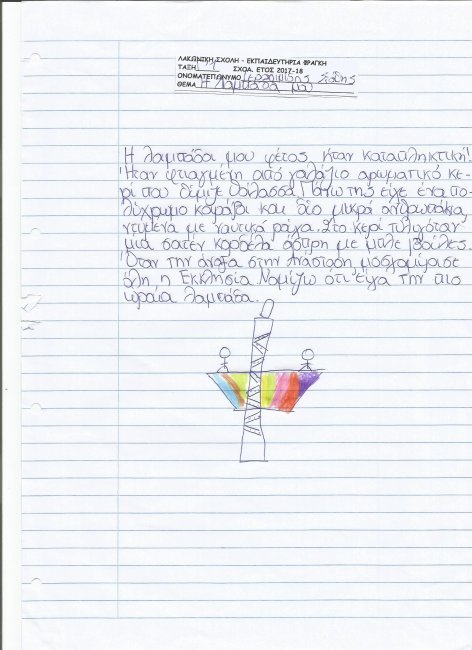 ΛΑΚΩΝΙΚΗ ΣΧΟΛΗ - ΕΚΠΑΙΔΕΥΤΗΡΙΑ ΦΡΑΓΚΗ
ΤΑΞΗ ΣΧΟΛ. ΕΤΟΣ 2017-18
ΟΝΟΜΑΤΕΠΩΝΥΜΟ
ΘΕΜΑ Η λαμπάδα μου
Η λαμπάδα μου φέτος ήταν καταπληκτική!
Ήταν φτιαγμένη από γαλάζιο αρωματικό κε-
ρί που θύμιζε θάλασσα. Πάνω της είχε ένα πο-
λύχρωμο καράβι και δύο μικρά ανθρωπάκια
ντυμένα με ναυτικά ρούχα. Στο κερί τυλιγόταν
μια σατέν κορδέλα άσπρη με μπλε βούλες.
Όταν την άναψα στην Ανάσταση μοσχομύρισε
όλη η Εκκλησία. Νομίζω ότι είχα την πιο
ωραία λαμπάδα.